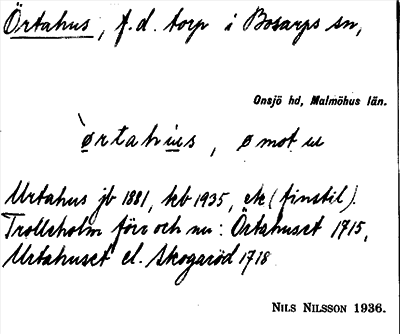 Örtahus, f.d. torp i Bosarps sn,
Onsjö hd, Malmöhus län.
`ørtahus, ø mot u
Urtahus jb 1881, kb 1935, ek (finstil).
Trolleholm förr och nu: Örtahuset 1715,
Urtahuset el. Skogaröd 1718
NILS NILSSON 1936.